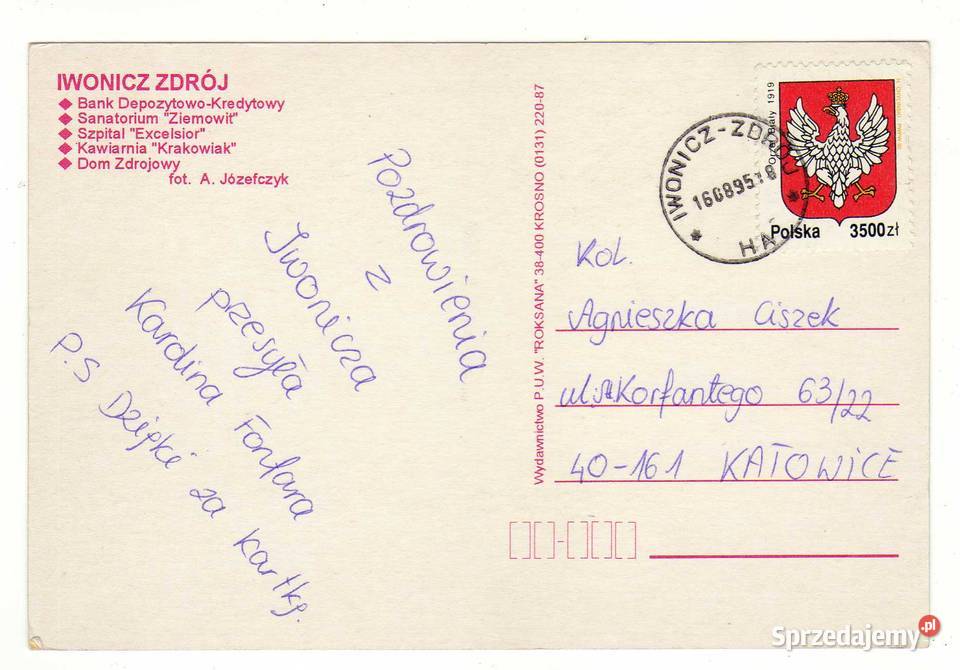 IWONICZ ZDRÓJ
◆ Bank Depozytowo-Kredytowy
◆ Sanatorium "Ziemowit"
◆ Szpital "Excelsior"
◆ Kawiarnia "Krakowiak"
◆ Dom Zdrojowy
fot. A. Józefczyk
Pozdrowienia
z
Iwonicza
przesyła
Karolina Fonfara
P.S Dzięki za kartkę.
Wydawnictwo P.U.W. "ROKSANA" 38-400 KROSNO (0131) 220-87
IWONICZ-ZDRÓJ
160895-18
* HA *
1919
Polska 3500zł
Kol.
Agnieszka Ciszek
ul. Korfantego 63/22
40-161 KATOWICE
Sprzedajemy.pl